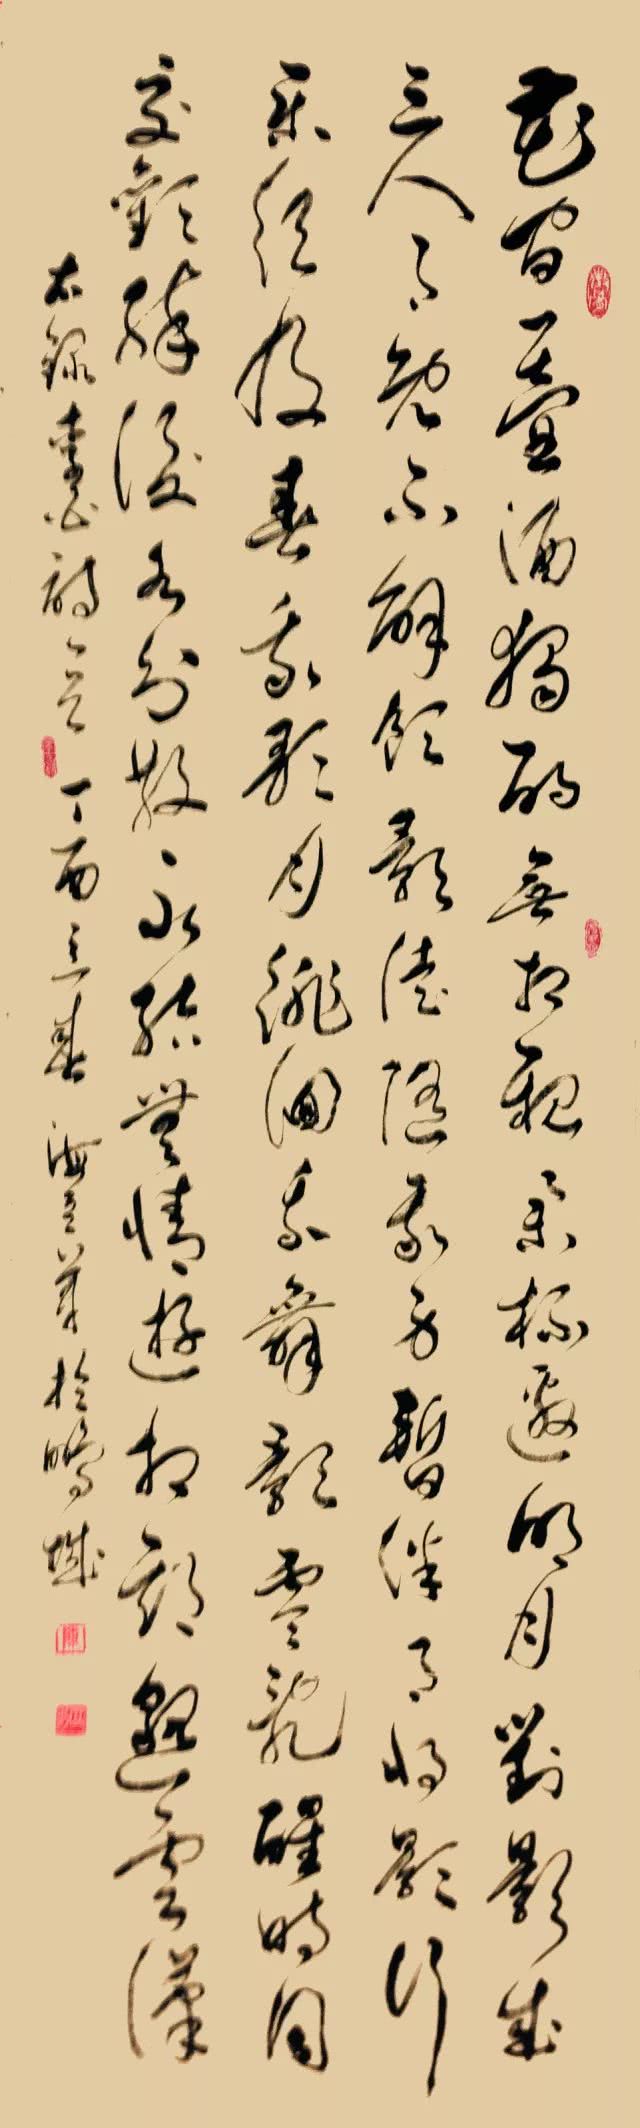 花間一壺酒獨酌無相親舉杯邀明月對影成
三人月既不解飲影徒隨我身暫伴月將影行
樂須及春我歌月徘徊我舞影零亂醒時同
交歡醉後各分散永結無情遊相期邈雲漢
右錄李白詩 丁酉立春 海 於鵬城